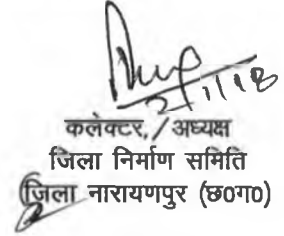 2/1/18
कलेक्टर, / अध्यक्ष
जिला निर्माण समिति
जिला नारायणपुर (छ0ग0)